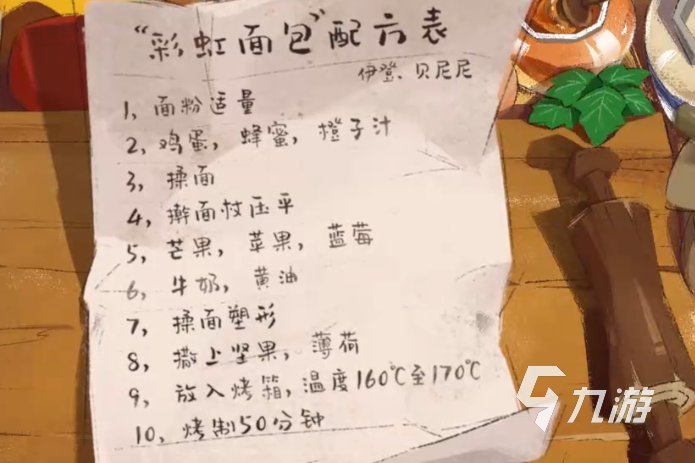 “彩虹面包”配方表
伊登、贝尼尼
1, 面粉适量
2, 鸡蛋, 蜂蜜, 橙子汁
3, 揉面
4, 擀面杖压平
5, 芒果, 苹果, 蓝莓
6, 牛奶, 黄油
7, 揉面塑形
8, 撒上坚果, 薄荷
9, 放入烤箱, 温度160℃至170℃
10, 烤制50分钟
九游